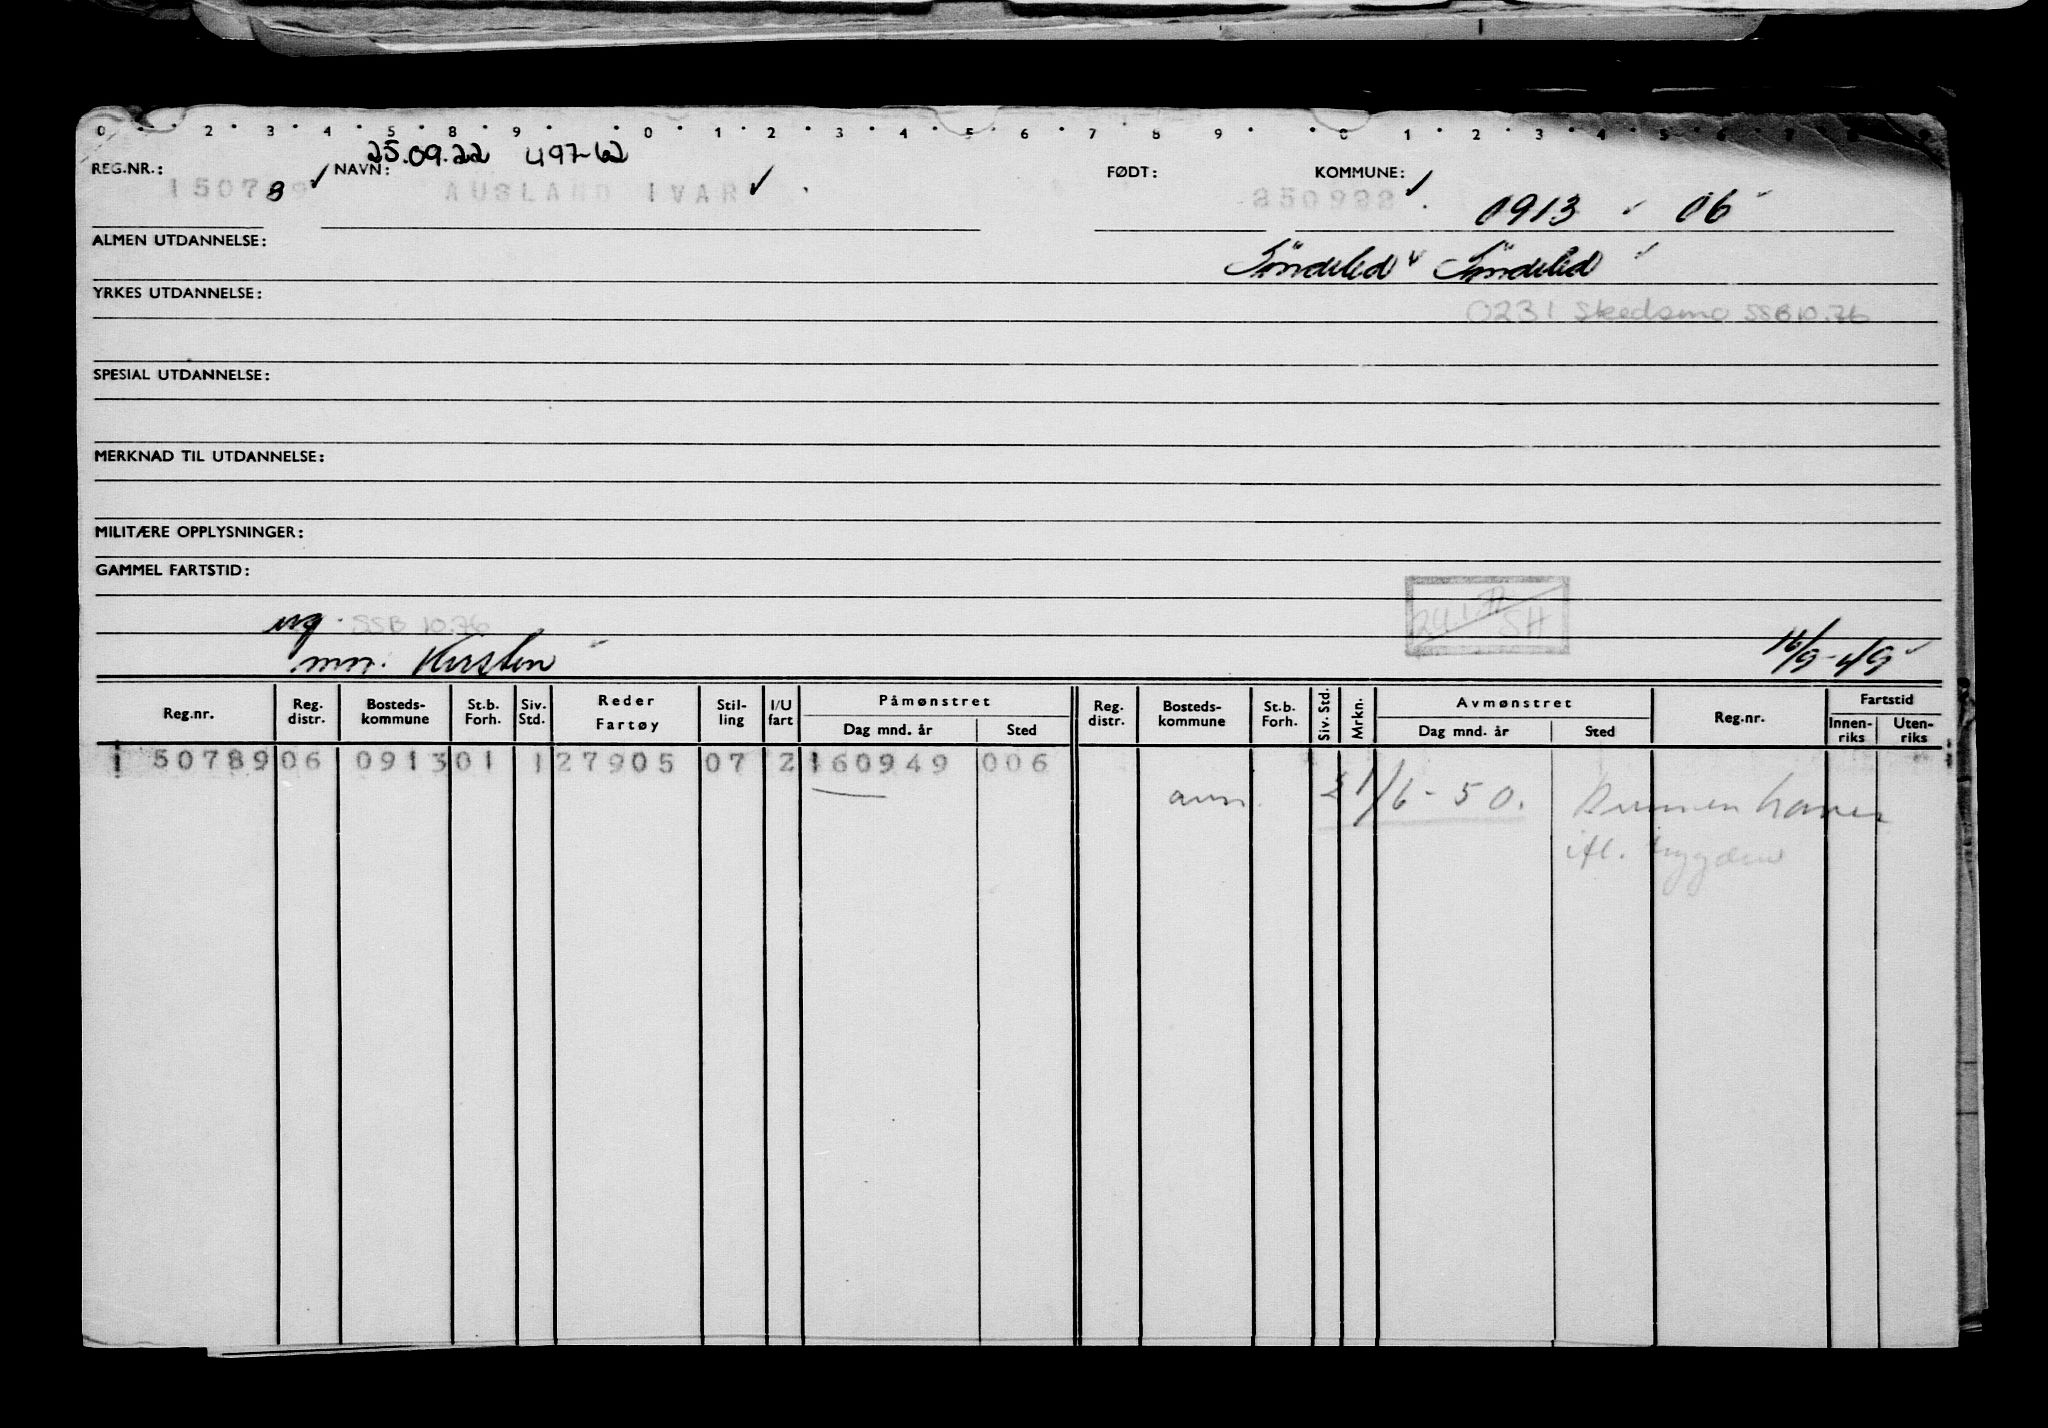 0 2 3 4 5 8 9 0 1 2 3 4 5 6 7 8 9 0 1 2 3 4 5 6 7 8 9
25.09.22 497-62
REG.NR.: NAVN: FØDT: KOMMUNE:
150789 8 ✓ AUSLAND IVAR ✓ 250922 ✓ 0913 06
ALMEN UTDANNELSE: Söndeled Söndeled
YRKES UTDANNELSE: 0231 Skedsmo SSB 10.76
SPESIAL UTDANNELSE:
MERKNAD TIL UTDANNELSE:
MILITÆRE OPPLYSNINGER:
GAMMEL FARTSTID:
ug. SSB 10.76 SH
mn. Kirsten 16/9-49
Reg.nr. Reg. distr. Bosteds-kommune St.b. Forh. Siv. Std. Reder Fartøy Stil-ling I/U fart Påmønstret Dag mnd. år Sted Reg. distr. Bosteds-kommune St.b. Forh. Siv. Std. Mrkn. Avmønstret Dag mnd. år Sted Reg.nr. Fartstid Innen-riks Uten-riks
150789 06 0913 01 1 27905 07 2 160949 006
avm. 21/6-50.
ifl. trygden